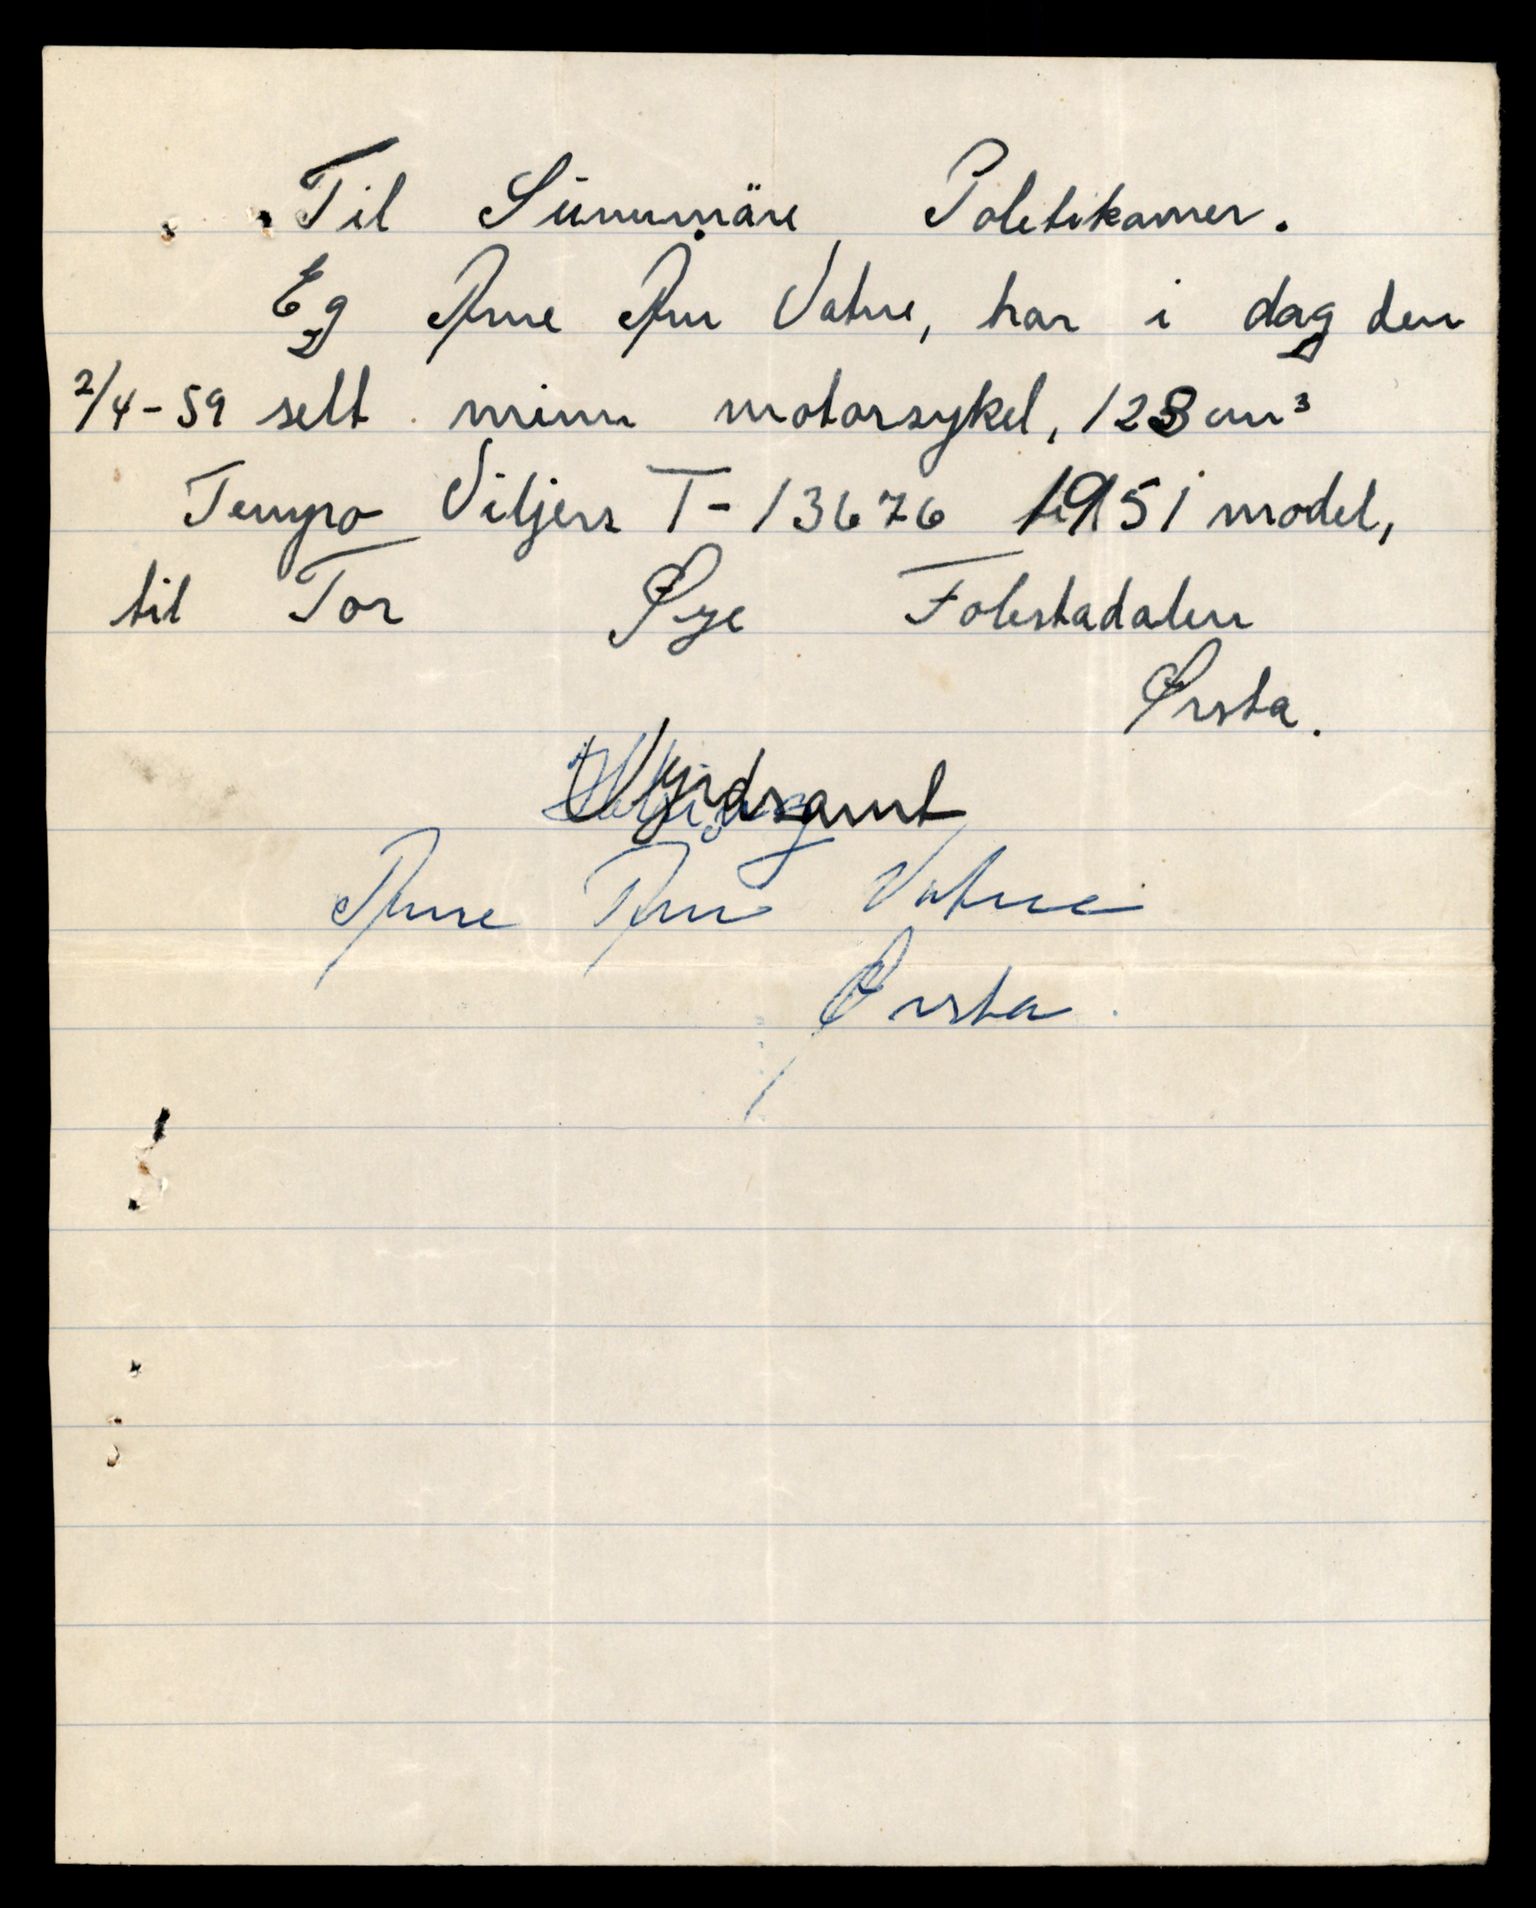 Til Sünnmäre Poletikamer.
Eg Arne Arn Vatne, har i dag den
2/4-59 selt minn motorsykel, 123 cm³
Tempo Viljers T-13676 1951 model,
til Tor Øye Folestadalen
Ørsta.
Vyrdsamt
Arne Arn Vatne
Ørsta.